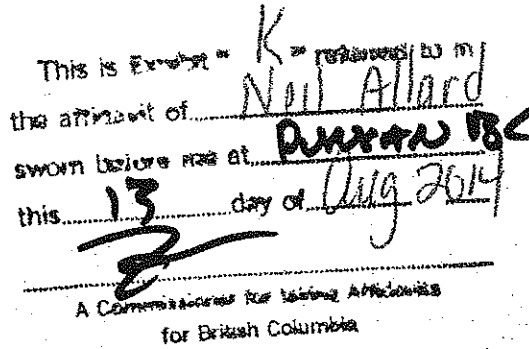 This is Exhibit " K " referred to in
the affidavit of Neil Allard
sworn before me at DUNCAN BC
this 13 day of Aug 2014
A Commissioner for taking Affidavits
for British Columbia